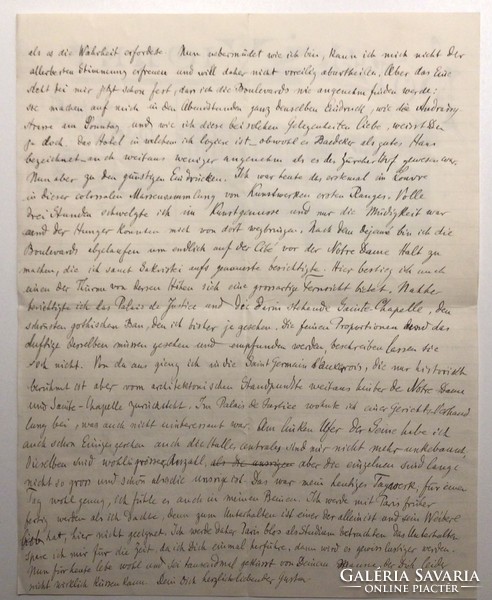 als es die Wahrheit erfordert. Nun uebermüdet wie ich bin, kann ich mich nicht der
allerbesten Stimmung erfreuen und will daher nicht voreilig aburtheilen. Aber das Eine
steht bei mir jetzt schon fest, dass ich die Boulevards nie angenehm finden werde:
sie machen auf mich in den Abendstunden ganz denselben Eindruck, wie die Andrássy
strasse am Sonntag, und wie ich diese bei solchen Gelegenheiten liebe, weisst Du
ja doch. Das Hotel in welchem ich logiere ist, obwohl es Baedeker als gutes Haus
bezeichnet, auch weitaus weniger angenehm als es der Zürcherhof gewesen war.
Nun aber zu den günstigen Eindrücken. Ich war heute das erstemal im Louvre
in dieser colossalen Massensammlung von Kunstwerken ersten Ranges. Volle
drei Stunden schwelgte ich im Kunstgenusse und nur die Müdigkeit war
und der Hunger konnten mich von dort wegbringen. Nach dem Dejeuné bin ich die
Boulevards abgelaufen um endlich auf der Cité vor der Notre Dame Halt zu
machen, die ich sammt Sakristei aufs genaueste besichtigte. Hier bestieg ich auch
einen der Thürme von dessen Höhen sich eine grossartige Fernsicht bietet. Nachher
besichtigte ich das Palais de Justice und die darin stehende Sainte Chapelle, den
schönsten gothischen Bau, den ich bisher je gesehen. Die feinen Proportionen und das
duftige derselben müssen gesehen und empfunden werden, beschreiben lassen sie
sich nicht. Von da aus gieng ich in die Saint Germain l'Auxerrois, die nur historisch
berühmt ist aber vom architektonischen Standpunkte weitaus hinter der Notre Dame
und Sainte-Chapelle zurücksteht. Im Palais de Justice wohnte ich einer Gerichtsverhand
lung bei, was auch nicht uninteressant war. Am linken Ufer der Seine habe ich
auch schon Einiges gesehen auch die Halles centrales sind mir nicht mehr unbekannt.
Dieselben sind wohl in grosser Anzahl, aber die einzelnen sind lange
nicht so gross und schön als die unsrige ist. Das war mein heutiges Tagewerk, für einen
Tag wohl genug, ich fühle es auch in meinen Beinen. Ich werde mit Paris früher
fertig werden als ich dachte, denn zum Unterhalten ist einer der allein ist und sein Weiberl
lieb hat, hier nicht geeignet. Ich werde daher Paris blos als Studium betrachten das Unterhalten
spare ich mir für die Zeit, da ich Dich einmal herführe, dann wird es gewiss lustiger werden.
Nun für heute lebe wohl und sei tausendmal geküsst von Deinem Manne, der Dich leider
nicht wirklich küssen kann. Dein Dich herzlich liebender Gustav
GALERIA SAVARIA
ONLINE PIACTÉR